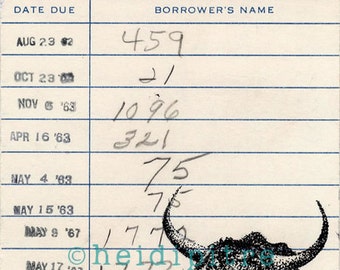 DATE DUE BORROWER'S NAME
AUG 23 63 459
OCT 23 63 21
NOV 6 '63 1096
APR 16 '63 321
MAY 4 '63 75
MAY 15 '63 75
MAY 9 '67 1777
©heidipitre
MAY 17 '67